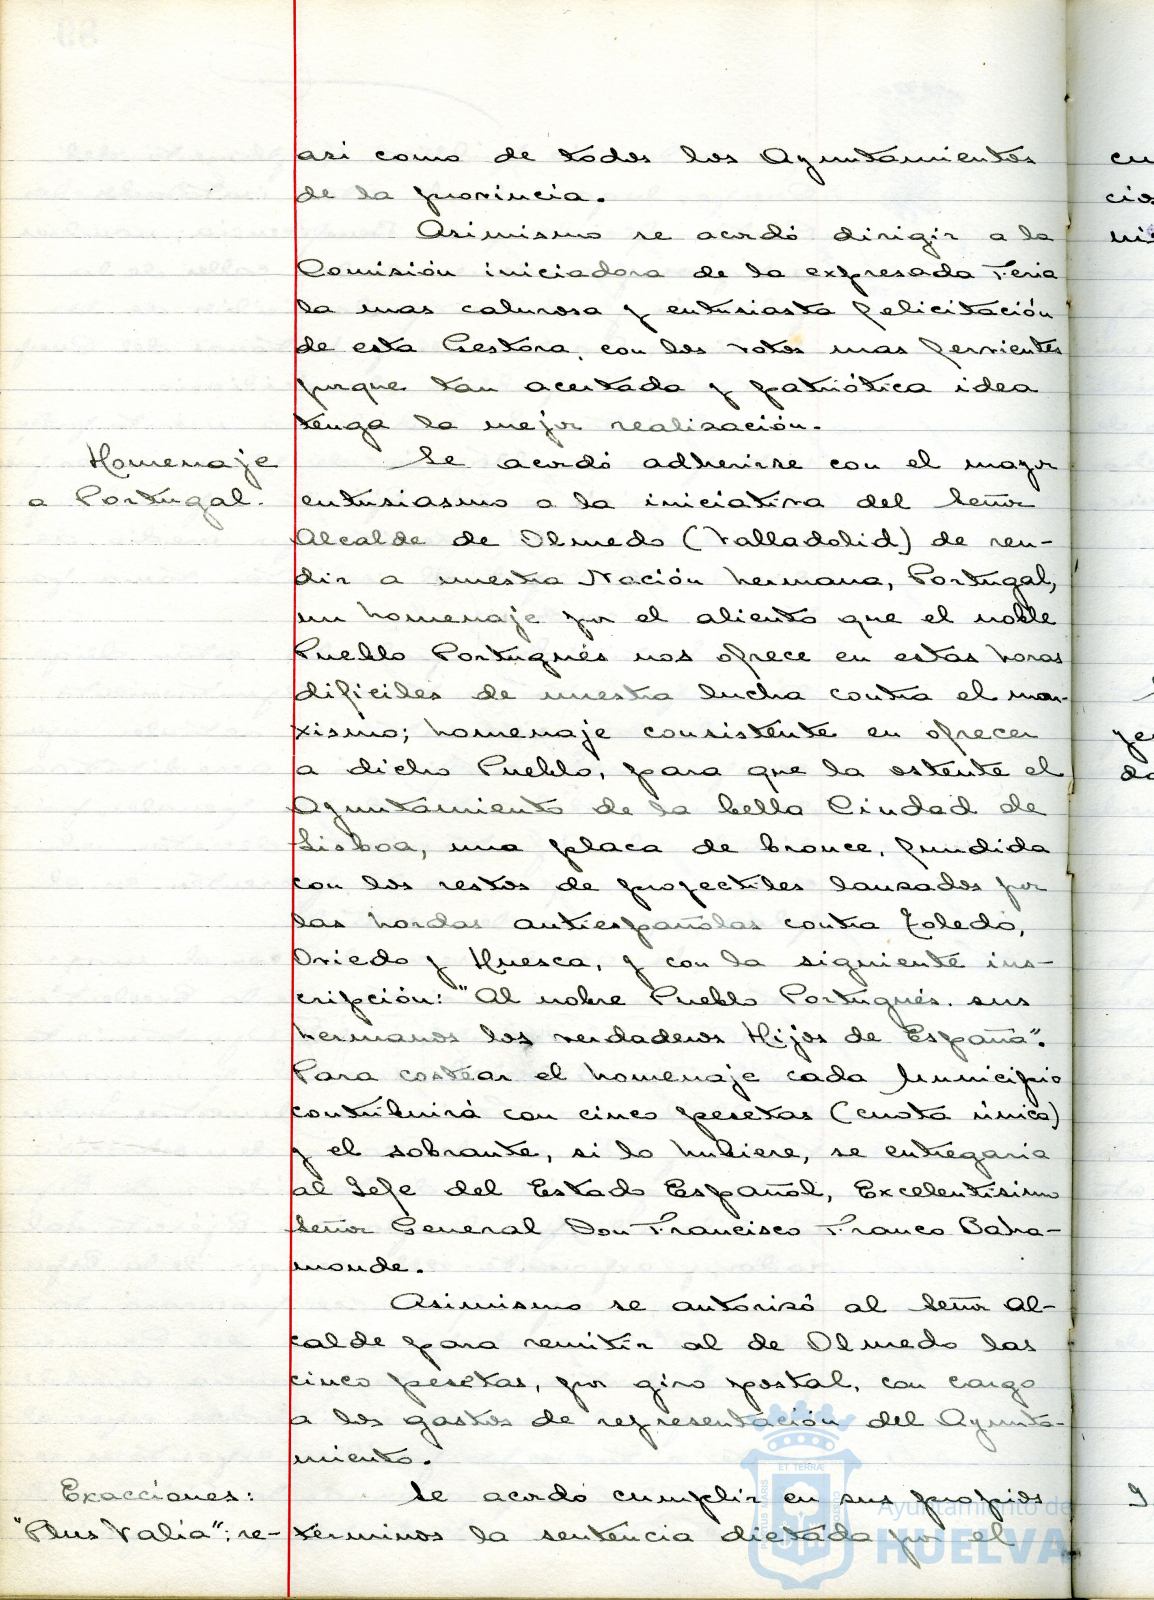 asi como de todos los Ayuntamientos
de la provincia.
Asimismo se acordó dirigir a la
Comisión iniciadora de la expresada Feria
la mas calurosa y entusiasta felicitación
de esta Gestora, con los votos mas fervientes
porque tan acertada y patriótica idea
tenga la mejor realización.
Homenaje
a Portugal.
Se acordó adherirse con el mayor
entusiasmo a la iniciativa del Señor
Alcalde de Olmedo (Valladolid) de ren-
dir a nuestra Nación hermana, Portugal,
un homenaje por el aliento que el noble
Pueblo Portugués nos ofrece en estas horas
dificiles de nuestra lucha contra el mar-
xismo; homenaje consistente en ofrecer
a dicho Pueblo, para que la ostente el
Ayuntamiento de la bella Ciudad de
Lisboa, una placa de bronce, fundida
con los restos de proyectiles lanzados por
las hordas antiespañolas contra Toledo,
Oviedo y Huesca, y con la siguiente ins-
cripción: "Al noble Pueblo Portugués. sus
hermanos los verdaderos Hijos de España".
Para costear el homenaje cada Municipio
contribuirá con cinco pesetas (cuota única)
y el sobrante, si lo hubiere, se entregaria
al Jefe del Estado Español, Excelentisimo
Señor General Don Francisco Franco Baha-
monde.
Asimismo se autorizó al Señor Al-
calde para remitir al de Olmedo las
cinco pesetas, por giro postal, con cargo
a los gastos de representación del Ayunta-
miento.
Exacciones:
"Plus Valia"; re-
Se acordó cumplir en sus propios
terminos la sentencia dictada por el
Ayuntamiento de
HUELVA